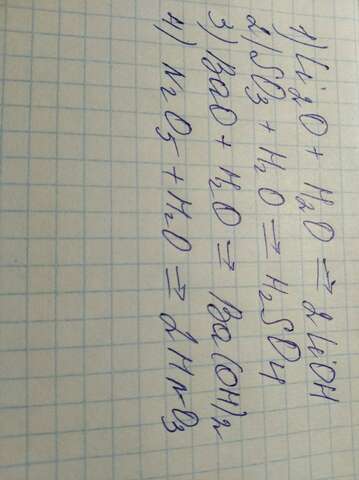 1) Li2O + H2O ⇒ 2LiOH
2) SO3 + H2O ⇒ H2SO4
3) BaO + H2O ⇒ Ba(OH)2
4) N2O5 + H2O ⇒ 2HNO3